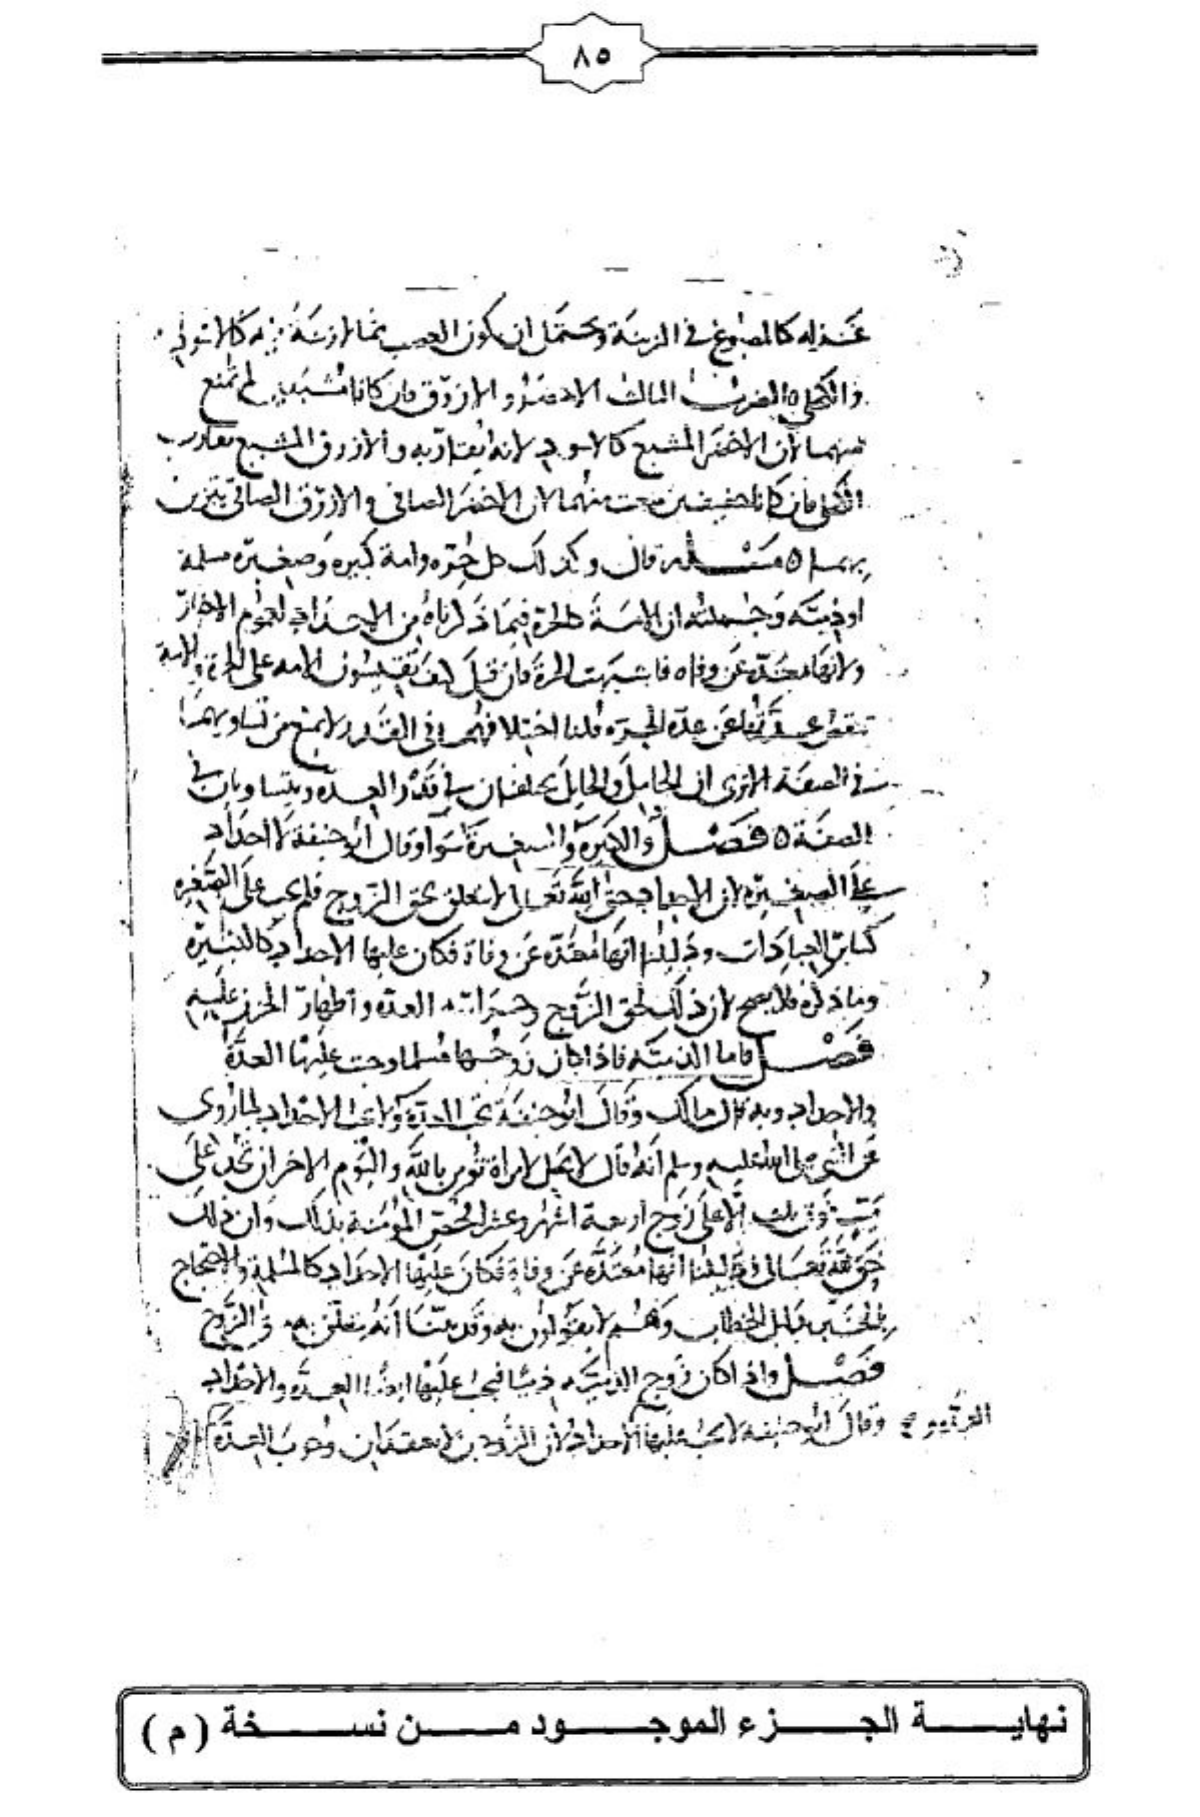 ٨٥
كالمصبوغ في الزينة ويحتمل ان يكون العصب مما لا زينة فيه كالاسود
والكحلي الضرب الثالث الاخضر والازرق فان كانا مشبعين لم تمنع
منهما لان الاخضر المشبع كالاسود لانه يقاربه والازرق المشبع يقارب
الكحلي فان كانا خفيفين منعت منهما لان الاخضر الصافي والازرق الصافي يتزين
بهما مسئله قال وكذلك كل حره وامة كبيره وصغيره مسلمة
او ذميه وجملته ان الامة كالحرة فيما ذكرناه من الاحداد لعموم الاخبار
ولانها معتده عن وفاه فاشبهت الحرة فان قيل كيف تقيسون الامه على الحرة والامة
تنقص عدتها عن عدة الحره قلنا اختلافهما في القدر لا يمنع من تساويهما
في الصفة الا ترى ان الحامل والحايل يختلفان في قدر العده ويتساويان في
الصفة فصل والكبيرة والصغيرة سوا وقال ابو حنيفه لا احداد
على الصغيره لان الاحداد حق الله تعالى لا يتعلق بحق الزوج فلم يجب على الصغيره
كسائر العبادات ودليلنا انها معتده عن وفاة فكان عليها الاحداد كالكبيره
وما ذكره فلا يصح لان ذلك لحق الزوج العده واظهار الحزن عليه
فصل فاما الذميه فاذا كان زوجها مسلما وجبت عليها العدة
والاحداد وبه قال مالك وقال ابو حنيفة تجب العدة ولا يجب الاحداد لما روى
عن النبي صلى الله عليه وسلم انه قال لا يحل لامراة تؤمن بالله واليوم الاخر ان تحد على
ميت فوق ثلث الا على زوج اربعة اشهر وعشرا فخص المؤمنة بذلك ولان ذلك
حق لله تعالى ودليلنا انها معتده عن وفاة فكان عليها الاحداد كالمسلمة والاحتجاج
بالخبر بدليل الخطاب وهم لا يقولون به وقد بينا انه يتعلق به حق الزوج
فصل واذا كان زوج الذميه ذميا فيجب عليها ايضا العده والاحداد
وقال ابو حنيفه لا يجب عليها الاحداد لان الزوجين لا يعتقدان وجوب العدة
نهاية الجزء الموجود من نسخة ( م )